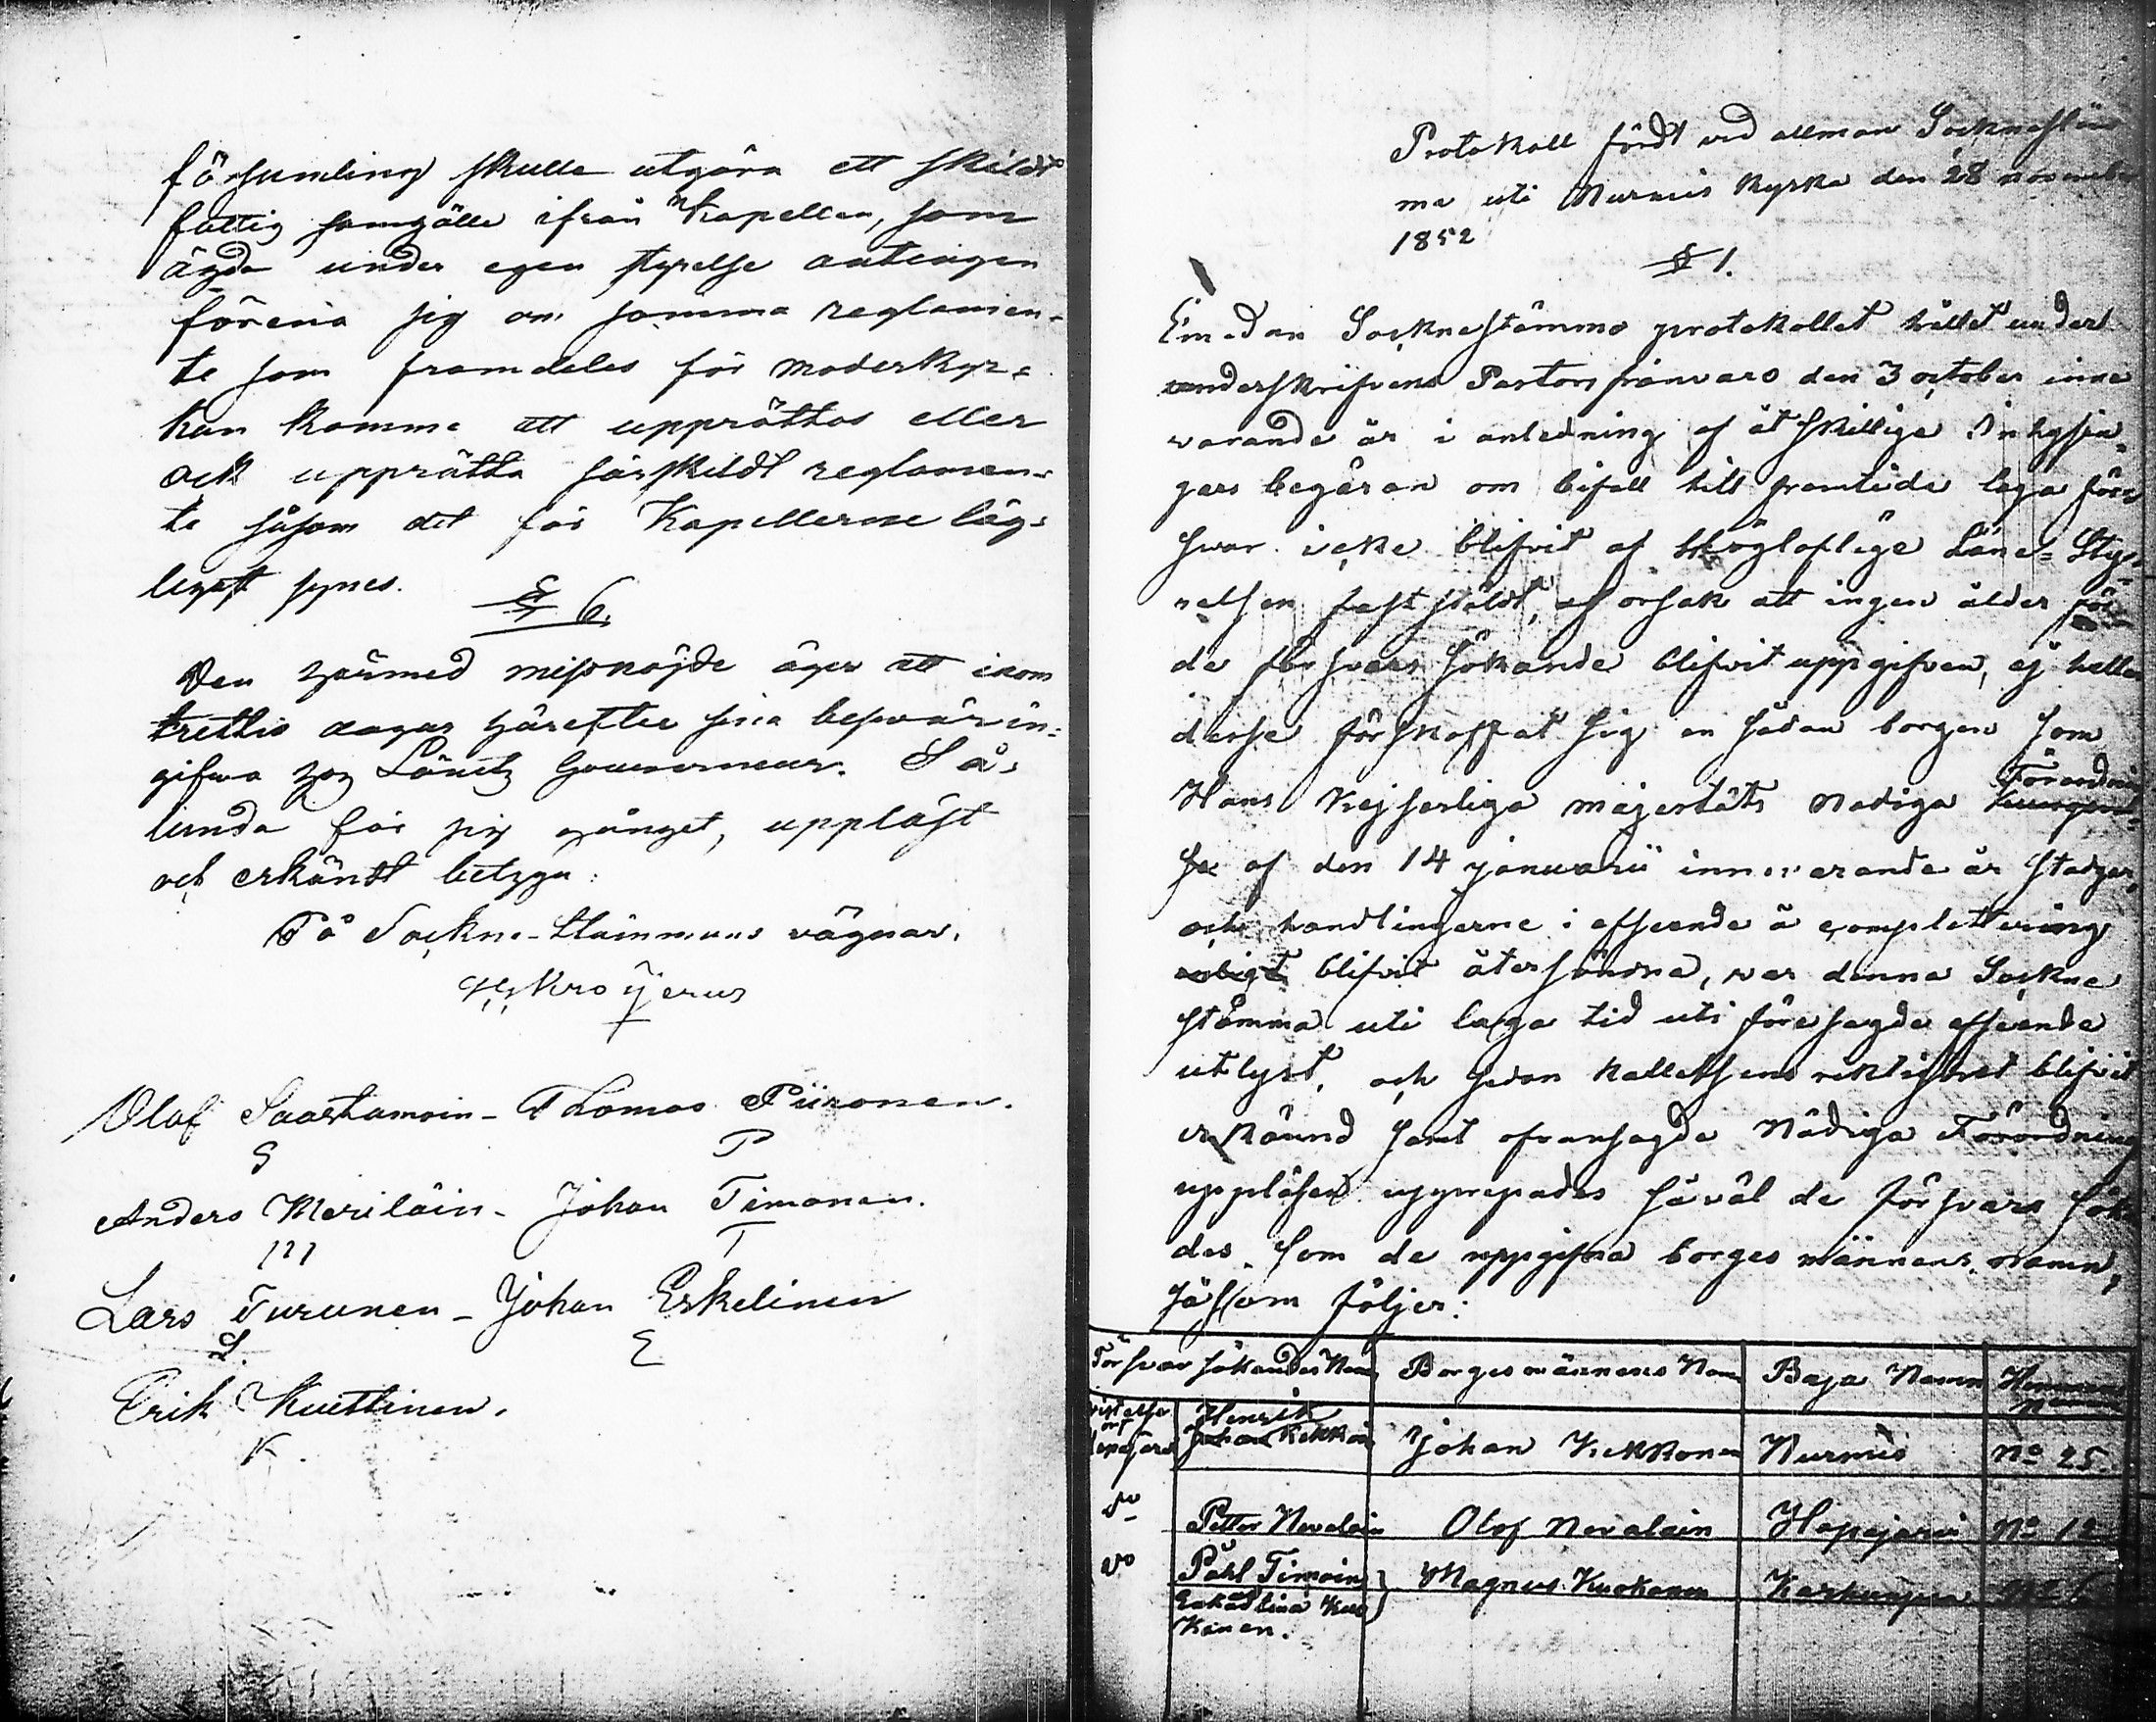 församling skulle utgöra ett skildt
fattig samhälle ifrån Kapellen, som
ägde under egen styrelse antingen
förena sig om samma reglamen-
te som framdeles för moderkyr-
kan komma att upprättas eller
ock upprätta särskildt reglamen-
te såsom det för Kapellerne läg-
ligast synes.
§ 6.
Den härmed missnöjde äger att inom
trettio dagar härefter sina besvär in-
gifwa hos Länets Gouverneur. Så-
lunda för sig gånget, uppläst
och erkändt betyga:
På Sockne-Stämmans vägnar.
Kroÿerus
Olof Saastamoin- Thomas Piironen.
S P
Anders Meriläin- Johan Timonen.
M T
Lars Turunen - Johan Eskelinen
L. E
Erik Kuittinen.
K.
Protokoll fördt vid allmän Socknestäm
ma uti Nurmis Kyrka den 28 november
1852
§ 1.
Emedan Socknestämmo protokollet hållet under
underskrifvens Pastors frånvaro den 3 october inne
varande år i anledning af åtskillige Inhysin-
gars begäran om bifall till framtida laga för-
svar icke blifvit af Höglofliga Läne-Sty-
relsen fastställdt, af orsak att ingen ålder för
de försvars sökande blifvit uppgifven, ej heller
desse förskaffat sig en sådan borgen som
Hans Kejserliga majestäts Nådiga Förordning
se af den 14 januarii innevarande år stadgar,
och handlingarne i afseende å complettering
blifvit återsände, var denna Sockne
stämma uti laga tid uti föresagde afseende
utlyst, och sedan kallelsens riktighet blifvit
erkännd samt ofvansagde Nådiga Förordning
uppläsen uppropades såväl de försvars sökan
des som de uppgifna borges männens namn,
såsom följer:
Försvar sökandes Namn Borges männens Namn Byja Namn Hemmans
Henrik
Johan Kekkoin Johan Kekkonen Nurmis No 25.
Do Petter Nevalain Olof Nevalain Hapajärvi No 12
Do Påhl Timoin Magnus Kuokanen No 6
Kinen.